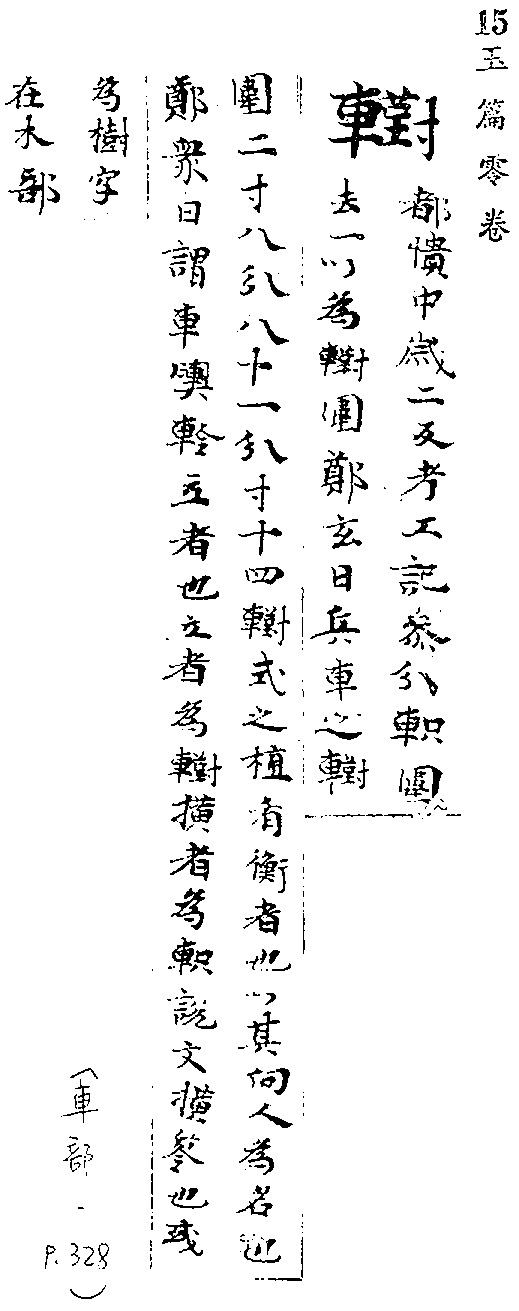 15玉篇零卷
轛 都憒中嵗二反考工記叅分軹圍
去一以為轛圍鄭玄曰兵車之轛
圍二寸八分八十一分寸十四轛式之植者衡者也以其向人為名也
鄭衆曰謂車輿軨立者也立者為轛橫者為軹說文橫軨也或
為樹字
在木部
(車部-P.328)